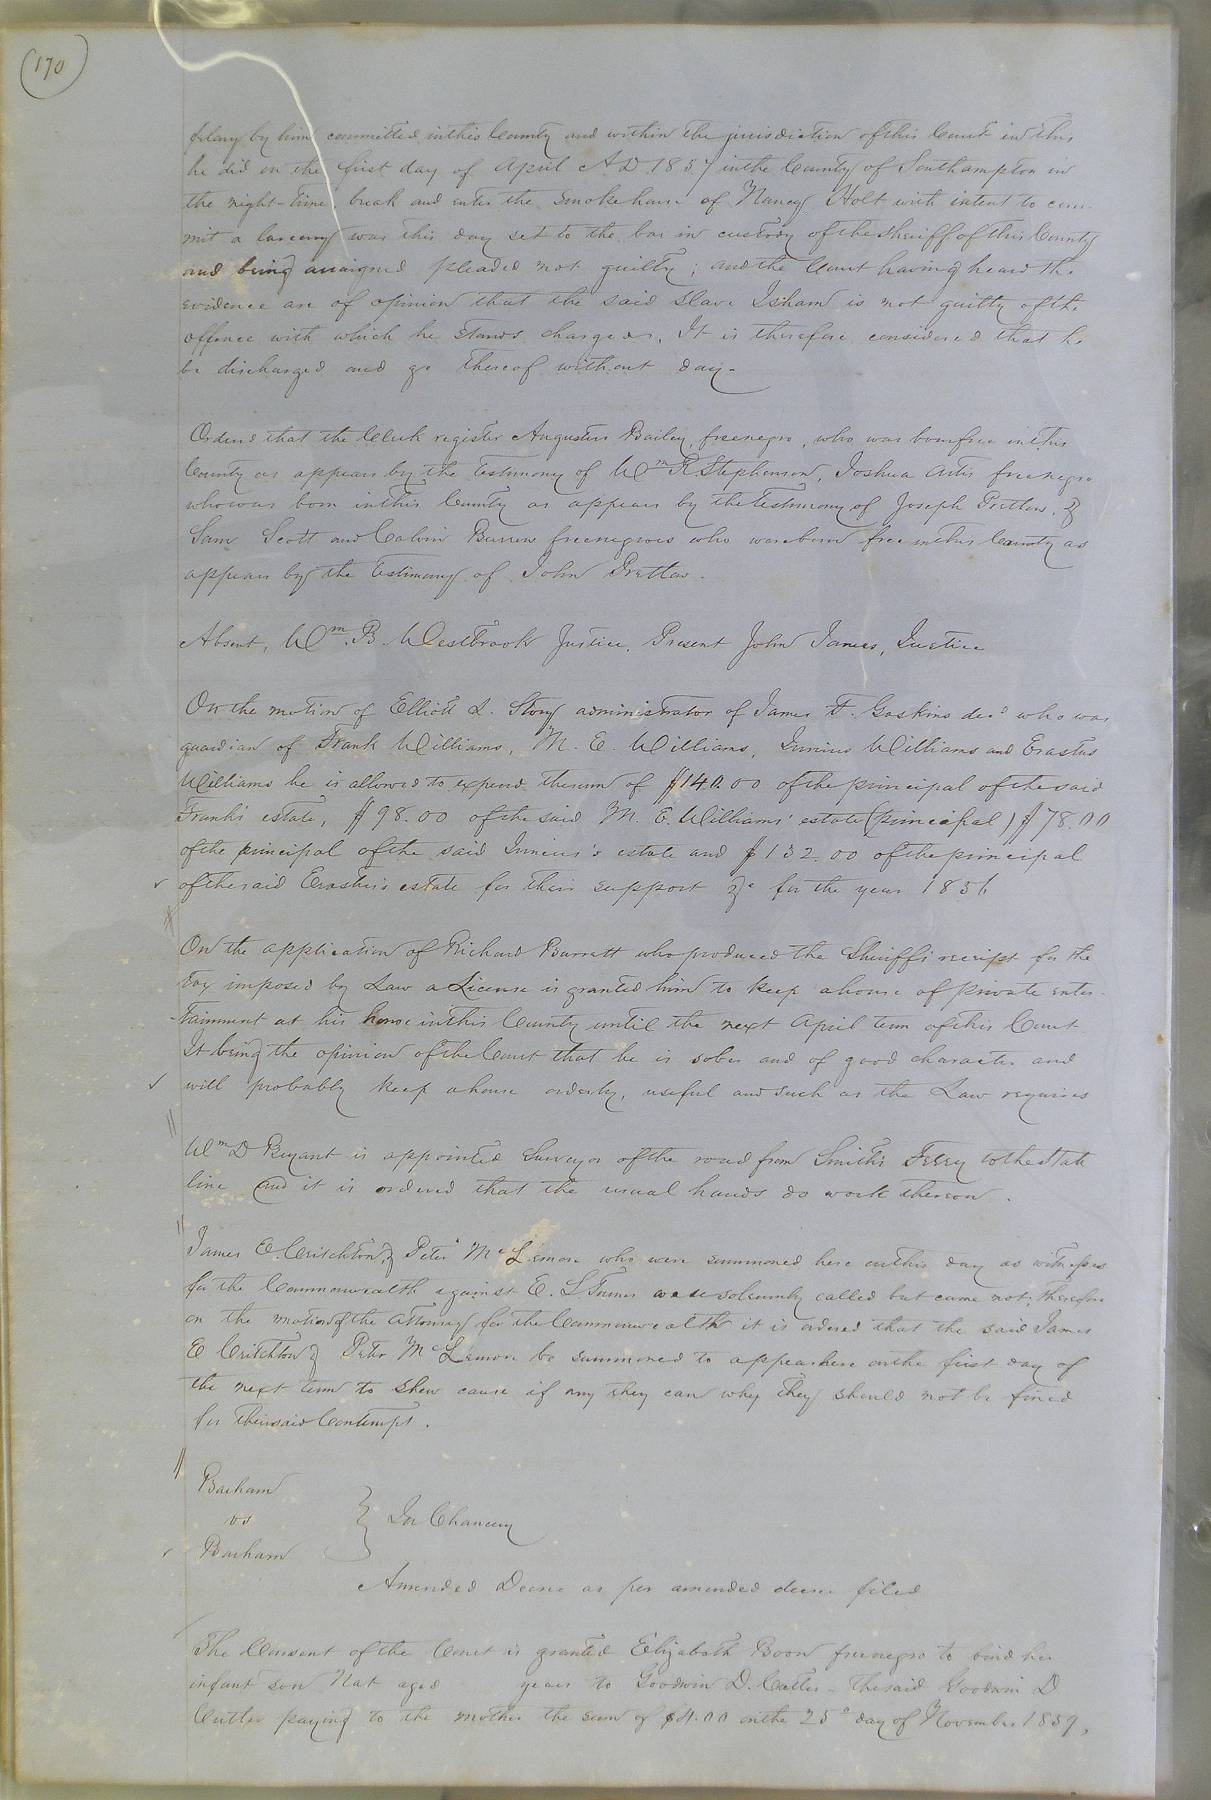 (170)
felony by him committed in this County and within the jurisdiction of this Court in this
he did on the first day of April A.D. 1857 in the County of Southampton in
the night-time, break and enter the smokehouse of Nancy Holt with intent to com-
mit a larceny was this day set to the bar in custody of the sheriff of this County
and being arraigned pleaded not guilty; and the Court having heard the
evidence are of opinion that the said slave Isham is not guilty of the
offence with which he stands charged. It is therefore considered that he
be discharged and go thereof without day-
Ordered that the Clerk register Augustus Bailey, free negro, who was born free in this
County as appears by the testimony of Wm R. Stephenson, Joshua Artis free negro
who was born in this County as appears by the testimony of Joseph Pretlow, &
Sam Scott and Calvin free negroes who were born free in this County as
appears by the testimony of John Pretlow.
Absent, Wm. B. Westbrook Justice, Present John James, Justice
On the motion of Elliott L. Story administrator of James F. Gaskins decd who was
guardian of Frank Williams, M. E. Williams, Junius Williams and Erastus
Williams he is allowed to expend the sum of $140.00 of the principal of the said
Frank's estate, $98.00 of the said M. E. Williams' estate (principal) $78.00
of the principal of the said Junius's estate and $132.00 of the principal
of the said Erastus's estate for their support &c for the year 1856
On the application of Richard Barrett who produced the Sheriff's receipt for the
tax imposed by Law a License is granted him to keep a house of private enter-
-tainment at his house in this County until the next April term of this Court
It being the opinion of the Court that he is sober and of good character and
will probably keep a house orderly, useful and such as the Law requires
Wm D Bryant is appointed Surveyor of the road from Smith's Ferry to the State
line and it is ordered that the usual hands do work thereon.
James E. Crichton & Peter McLemore who were summoned here on this day as witnesses
for the Commonwealth against E. L. Turner were solemnly called but came not; therefore
on the motion of the Attorney for the Commonwealth it is ordered that the said James
E Crichton & Peter McLemore be summoned to appear here on the first day of
the next term to shew cause if any they can why they should not be fined
for their said Contempt.
Barham
vs } In Chancery
Barham
Amended Decree as per amended decree filed
The Consent of the Court is granted Elizabeth Boon free negro to bind her
infant son Nat aged years to Goodwin D. Cutler - The said Goodwin D
Cutler paying to the mother the sum of $4.00 on the 25th day of November 1859,